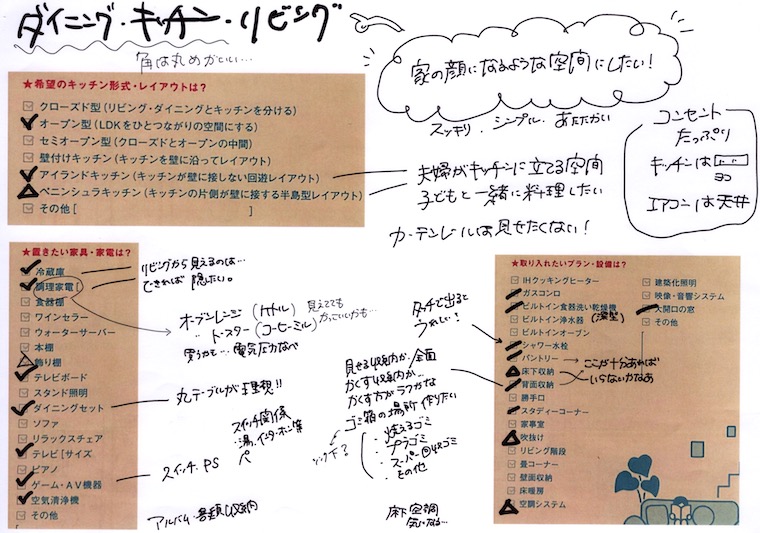 ダイニング・キッチン・リビング
角は丸めがいい…
★希望のキッチン形式・レイアウトは?
クローズド型(リビング・ダイニングとキッチンを分ける)
オープン型(LDKをひとつながりの空間にする)
セミオープン型(クローズドとオープンの中間)
壁付けキッチン(キッチンを壁に沿ってレイアウト)
アイランドキッチン(キッチンが壁に接しない回遊レイアウト)
ペニンシュラキッチン(キッチンの片側が壁に接する半島型レイアウト)
その他[ ]
家の顔になるような空間にしたい!
スッキリ・シンプル・あたたかい
夫婦がキッチンに立てる空間
子どもと一緒に料理したい
カーテンレールは見せたくない!
コンセント
たっぷり
キッチンは
ヨコ
エアコンは天井
★置きたい家具・家電は?
冷蔵庫
調理家電[
食器棚
ワインセラー
ウォーターサーバー
本棚
飾り棚
テレビボード
スタンド照明
ダイニングセット
ソファ
リラックスチェア
テレビ[サイズ
ピアノ
ゲーム・AV機器
空気清浄機
その他
リビングから見えるのは…
できれば隠したい。
オーブンレンジ(ケトル)
〃 トースター(コーヒーミル)
見えてても
かっこいいかも…
買うかも…電気圧力なべ
丸テーブルが理想!!
スイッチ関係
・湯、インターホン等
スイッチ、PS
アルバム・書類収納
タッチで出ると
うれしい!
見せる収納か、全面
かくす収納か…
かくす方がラクかな
ゴミ箱の場所作りたい
シンク下?
・燃えるゴミ
・プラゴミ
・スーパー回収ゴミ
・その他
床下空調
気になる…
★取り入れたいプラン・設備は?
IHクッキングヒーター
ガスコンロ
ビルトイン食器洗い乾燥機
(深型)
ビルトイン浄水器
ビルトインオーブン
シャワー水栓
パントリー
床下収納
背面収納
勝手口
スタディーコーナー
家事室
吹抜け
リビング階段
畳コーナー
壁面収納
床暖房
空調システム
建築化照明
映像・音響システム
大開口の窓
その他
ここが十分あれば
いらないかなあ